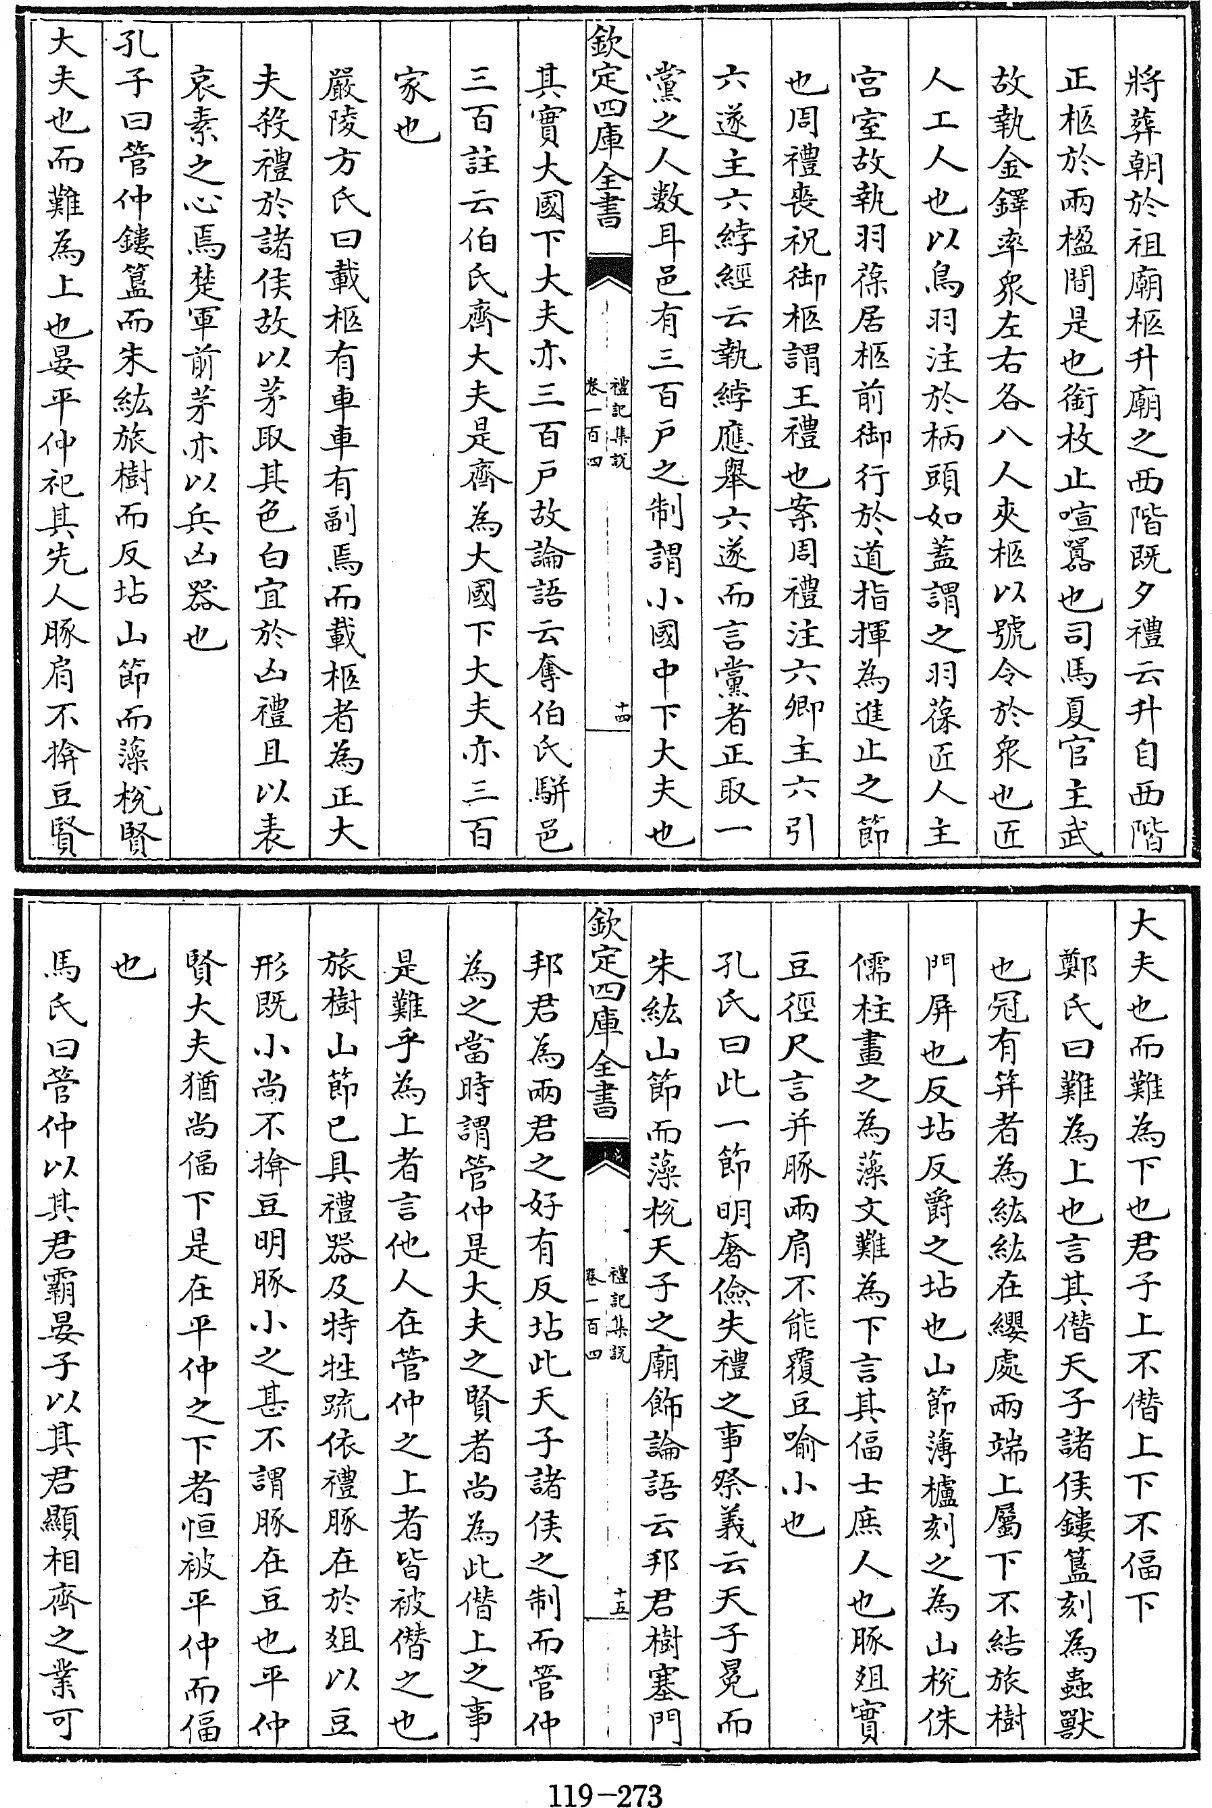 將葬朝於祖廟柩升廟之西階既夕禮云升自西階
正柩於兩楹間是也銜枚止喧囂也司馬夏官主武
故執金鐸率衆左右各八人夾柩以號令於衆也匠
人工人也以鳥羽注於柄頭如蓋謂之羽葆匠人主
宫室故執羽葆居柩前御行於道指揮為進止之節
也周禮喪祝御柩謂王禮也案周禮注六卿主六引
六遂主六綍經云執綍應舉六遂而言黨者正取一
黨之人數耳邑有三百户之制謂小國中下大夫也
欽定四庫全書
禮記集説
卷一百四
十四
其實大國下大夫亦三百户故論語云奪伯氏駢邑
三百註云伯氏齊大夫是齊為大國下大夫亦三百
家也
嚴陵方氏曰載柩有車車有副焉而載柩者為正大
夫殺禮於諸侯故以茅取其色白宜於凶禮且以表
哀素之心焉楚軍前茅亦以兵凶器也
孔子曰管仲鏤簋而朱紘旅樹而反坫山節而藻梲賢
大夫也而難為上也晏平仲祀其先人豚肩不揜豆賢
大夫也而難為下也君子上不僭上下不偪下
鄭氏曰難為上也言其僭天子諸侯鏤簋刻為蟲獸
也冠有笄者為紘紘在纓處兩端上屬下不結旅樹
門屏也反坫反爵之坫也山節薄櫨刻之為山梲侏
儒柱畫之為藻文難為下言其偪士庶人也豚俎實
豆徑尺言并豚兩肩不能覆豆喻小也
孔氏曰此一節明奢儉失禮之事祭義云天子冕而
朱紘山節而藻梲天子之廟飾論語云邦君樹塞門
欽定四庫全書
禮記集説
卷一百四
十五
邦君為兩君之好有反坫此天子諸侯之制而管仲
為之當時謂管仲是大夫之賢者尚為此僭上之事
是難乎為上者言他人在管仲之上者皆被僭之也
旅樹山節已具禮器及特牲疏依禮豚在於俎以豆
形既小尚不揜豆明豚小之甚不謂豚在豆也平仲
賢大夫猶尚偪下是在平仲之下者恒被平仲而偪
也
馬氏曰管仲以其君霸晏子以其君顯相齊之業可
119-273